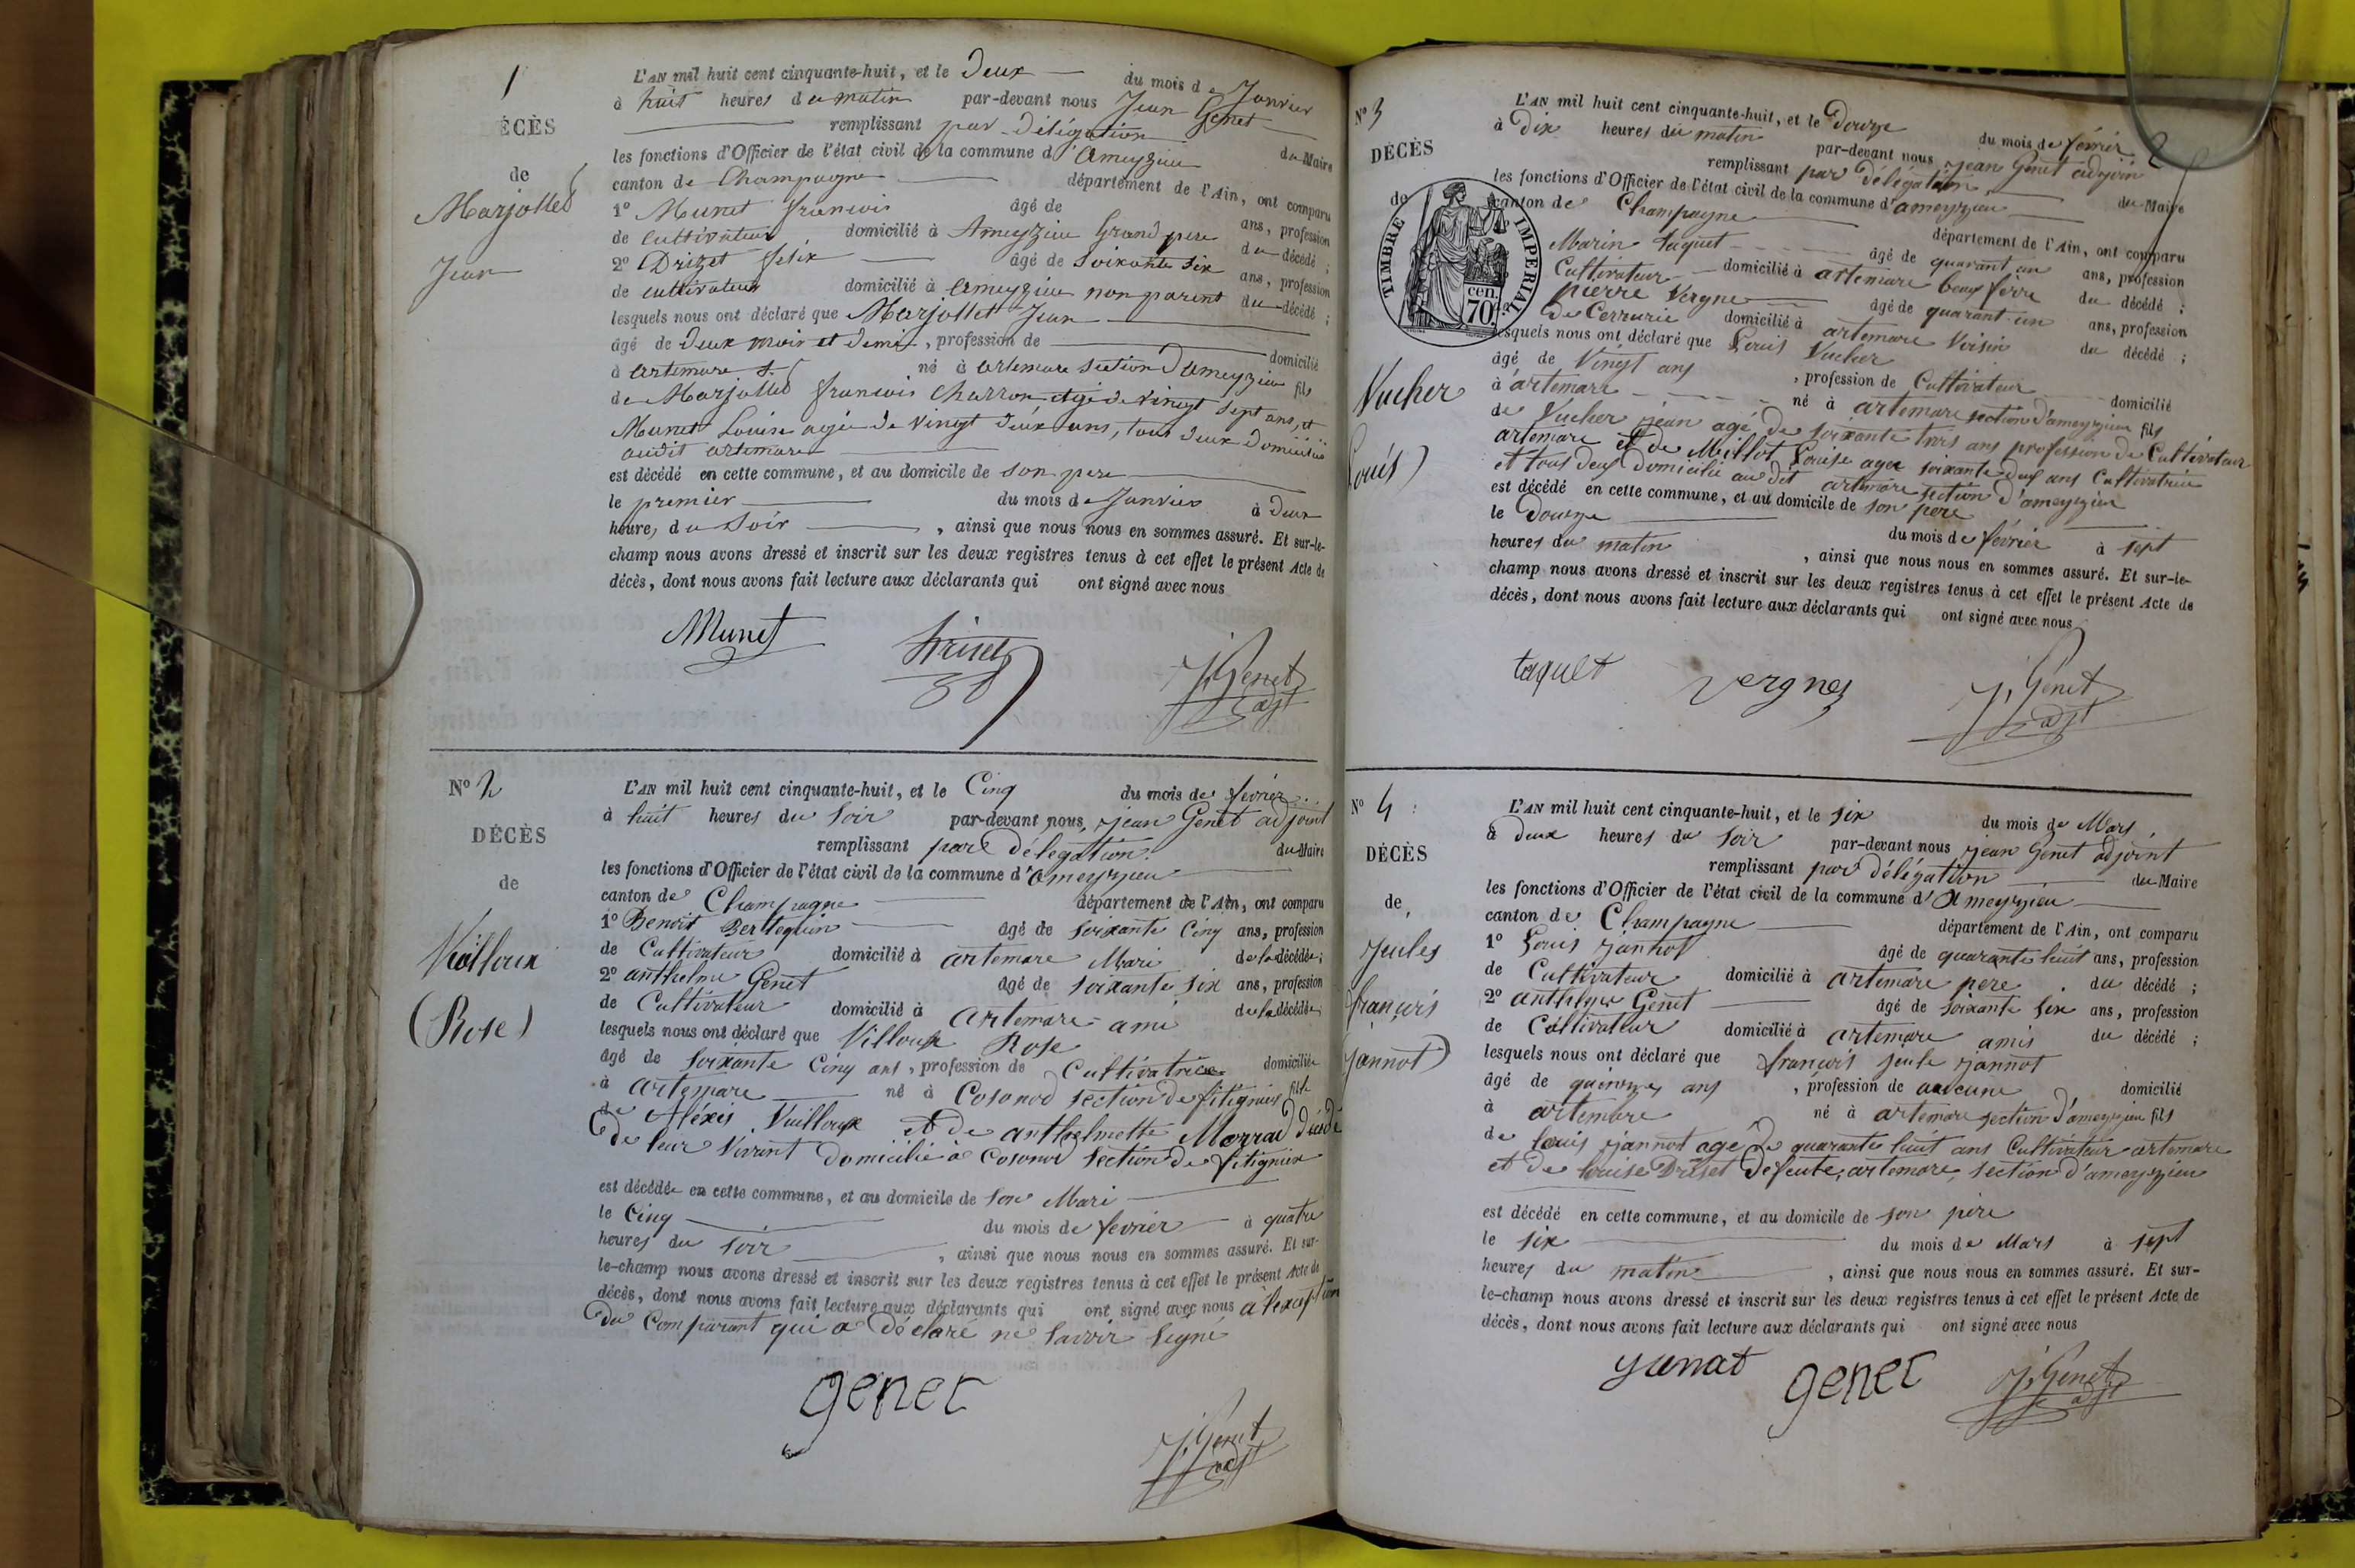 1
DÉCÈS
de
Marjollet
Jean
L'AN mil huit cent cinquante-huit, et le Deux du mois de Janvier
à huit heures du matin par-devant nous Jean Genet
remplissant par délégation du Maire
les fonctions d'Officier de l'état civil de la commune d'Ameyzieu
canton de Champagne département de l'Ain, ont comparu
1° Munet francois âgé de ans, profession
de cultivateur domicilié à Ameyzieu Grand pere du décédé ;
2° Drizet felix âgé de soixante six ans, profession
de cultivateur domicilié à Ameyzieu non parent du décédé ;
lesquels nous ont déclaré que Marjollet Jean
âgé de deux mois et demi, profession de domicilié
à artemare né à artemare section d'ameyzieu fils
de Marjollet francois Charron, agé de vingt sept ans, et
Munet Louise agée de vingt deux ans, tous deux domiciliés
audit artemare
est décédé en cette commune, et au domicile de son pere
le premier du mois de Janvier à deux
heures du soir, ainsi que nous nous en sommes assuré. Et sur-le-
champ nous avons dressé et inscrit sur les deux registres tenus à cet effet le présent Acte de
décès, dont nous avons fait lecture aux déclarants qui ont signé avec nous
Munet J. Genet adjt
N° 2
DÉCÈS
de
Violloux
(Rose)
L'AN mil huit cent cinquante-huit, et le Cinq du mois de février
à huit heures du soir par-devant nous, jean Genet adjoint
remplissant par délégation du Maire
les fonctions d'Officier de l'état civil de la commune d'ameyzieu
canton de Champagne département de l'Ain, ont comparu
1° Benoit Berthequin âgé de soixante Cinq ans, profession
de Cultivateur domicilié à artemare Mari de la décédée ;
2° anthelme Genet âgé de soixante six ans, profession
de Cultivateur domicilié à artemare ami de la décédée
lesquels nous ont déclaré que Villoux Rose
âgé de soixante Cinq ans, profession de Cultivatrice domiciliée
à artemare né à Cosonod section de fitignieu fille
de Aléxis Vuilloux et de anthelmette Morrad
de leur vivant domicilié à Cosonod section de fitignieu
est décédée en cette commune, et au domicile de son Mari
le Cinq du mois de fevrier à quatre
heures du soir, ainsi que nous nous en sommes assuré. Et sur-
le-champ nous avons dressé et inscrit sur les deux registres tenus à cet effet le présent Acte de
décès, dont nous avons fait lecture aux déclarants qui ont signé avec nous a l'exception
du Comparant qui a déclaré ne savoir signé
genet
J. Genet adjt
N° 3
DÉCÈS
de
TIMBRE IMPERIAL
70 cen.
Vucher
Louis)
L'AN mil huit cent cinquante-huit, et le Douze du mois de février
à dix heures du matin par-devant nous jean Genet adjoin
remplissant par délégation du Maire
les fonctions d'Officier de l'état civil de la commune d'ameyzieu
canton de Champagne département de l'Ain, ont comparu
Marin taquet âgé de quarant un ans, profession
Cultivateur domicilié à artemare beaux frere du décédé ;
pierre Vergne âgé de quarant un ans, profession
de Cerrurie domicilié à artemare Voisin du décédé ;
lesquels nous ont déclaré que Louis Vucher
âgé de Vingt ans, profession de Cultivateur domicilié
à artemare né à artemare section d'ameyzieu fils
de Vucher jean agé de soixante trois ans profession de Cultivateur
artemare et de Millot Louise agee soixante deux ans Cultivatrice
et tous deux domicilié au dit artemare section d'ameyzieu
est décédé en cette commune, et au domicile de son pere
le Douze du mois de février à sept
heures du matin, ainsi que nous nous en sommes assuré. Et sur-le-
champ nous avons dressé et inscrit sur les deux registres tenus à cet effet le présent Acte de
décès, dont nous avons fait lecture aux déclarants qui ont signé avec nous
taquet vergnes J. Genet adjt
N° 4
DÉCÈS
de
jeules
françois
jannot)
L'AN mil huit cent cinquante-huit, et le six du mois de Mars
à deux heures du soir par-devant nous jean Genet adjoint
remplissant par délégation du Maire
les fonctions d'Officier de l'état civil de la commune d'Ameyzieu
canton de Champagne département de l'Ain, ont comparu
1° Louis jannot âgé de quarante huit ans, profession
de Cultivateur domicilié à artemare pere du décédé ;
2° anthelme Genet âgé de soixante six ans, profession
de Cultivateur domicilié à artemare amis du décédé ;
lesquels nous ont déclaré que françois jeule jannot
âgé de quinze ans, profession de aucune domicilié
à artemare né à artemare section d'ameyzieu fils
de louis jannot age de quarante huit ans Cultivateur artemare
et de louise Driset defeute, artemare, section d'ameyzieu
est décédé en cette commune, et au domicile de son père
le six du mois de Mars à sept
heures du matin, ainsi que nous nous en sommes assuré. Et sur-
le-champ nous avons dressé et inscrit sur les deux registres tenus à cet effet le présent Acte de
décès, dont nous avons fait lecture aux déclarants qui ont signé avec nous
genet J. Genet adjt